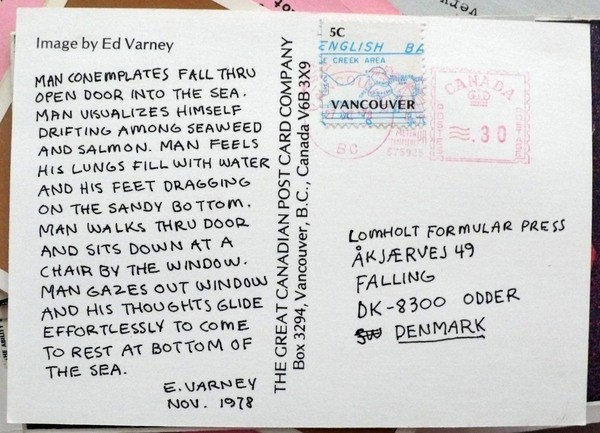 Image by Ed Varney
MAN CONEMPLATES FALL THRU
OPEN DOOR INTO THE SEA.
MAN VISUALIZES HIMSELF
DRIFTING AMONG SEAWEED
AND SALMON. MAN FEELS
HIS LUNGS FILL WITH WATER
AND HIS FEET DRAGGING
ON THE SANDY BOTTOM.
MAN WALKS THRU DOOR
AND SITS DOWN AT A
CHAIR BY THE WINDOW.
MAN GAZES OUT WINDOW
AND HIS THOUGHTS GLIDE
EFFORTLESSLY TO COME
TO REST AT BOTTOM OF
THE SEA.
E. VARNEY
NOV. 1978
THE GREAT CANADIAN POST CARD COMPANY
Box 3294, Vancouver, B.C., Canada V6B 3X9
5C
ENGLISH BA
E CREEK AREA
VANCOUVER
BC
CANADA
.30
LOMHOLT FORMULAR PRESS
ÅKJÆRVEJ 49
FALLING
DK-8300 ODDER
DENMARK